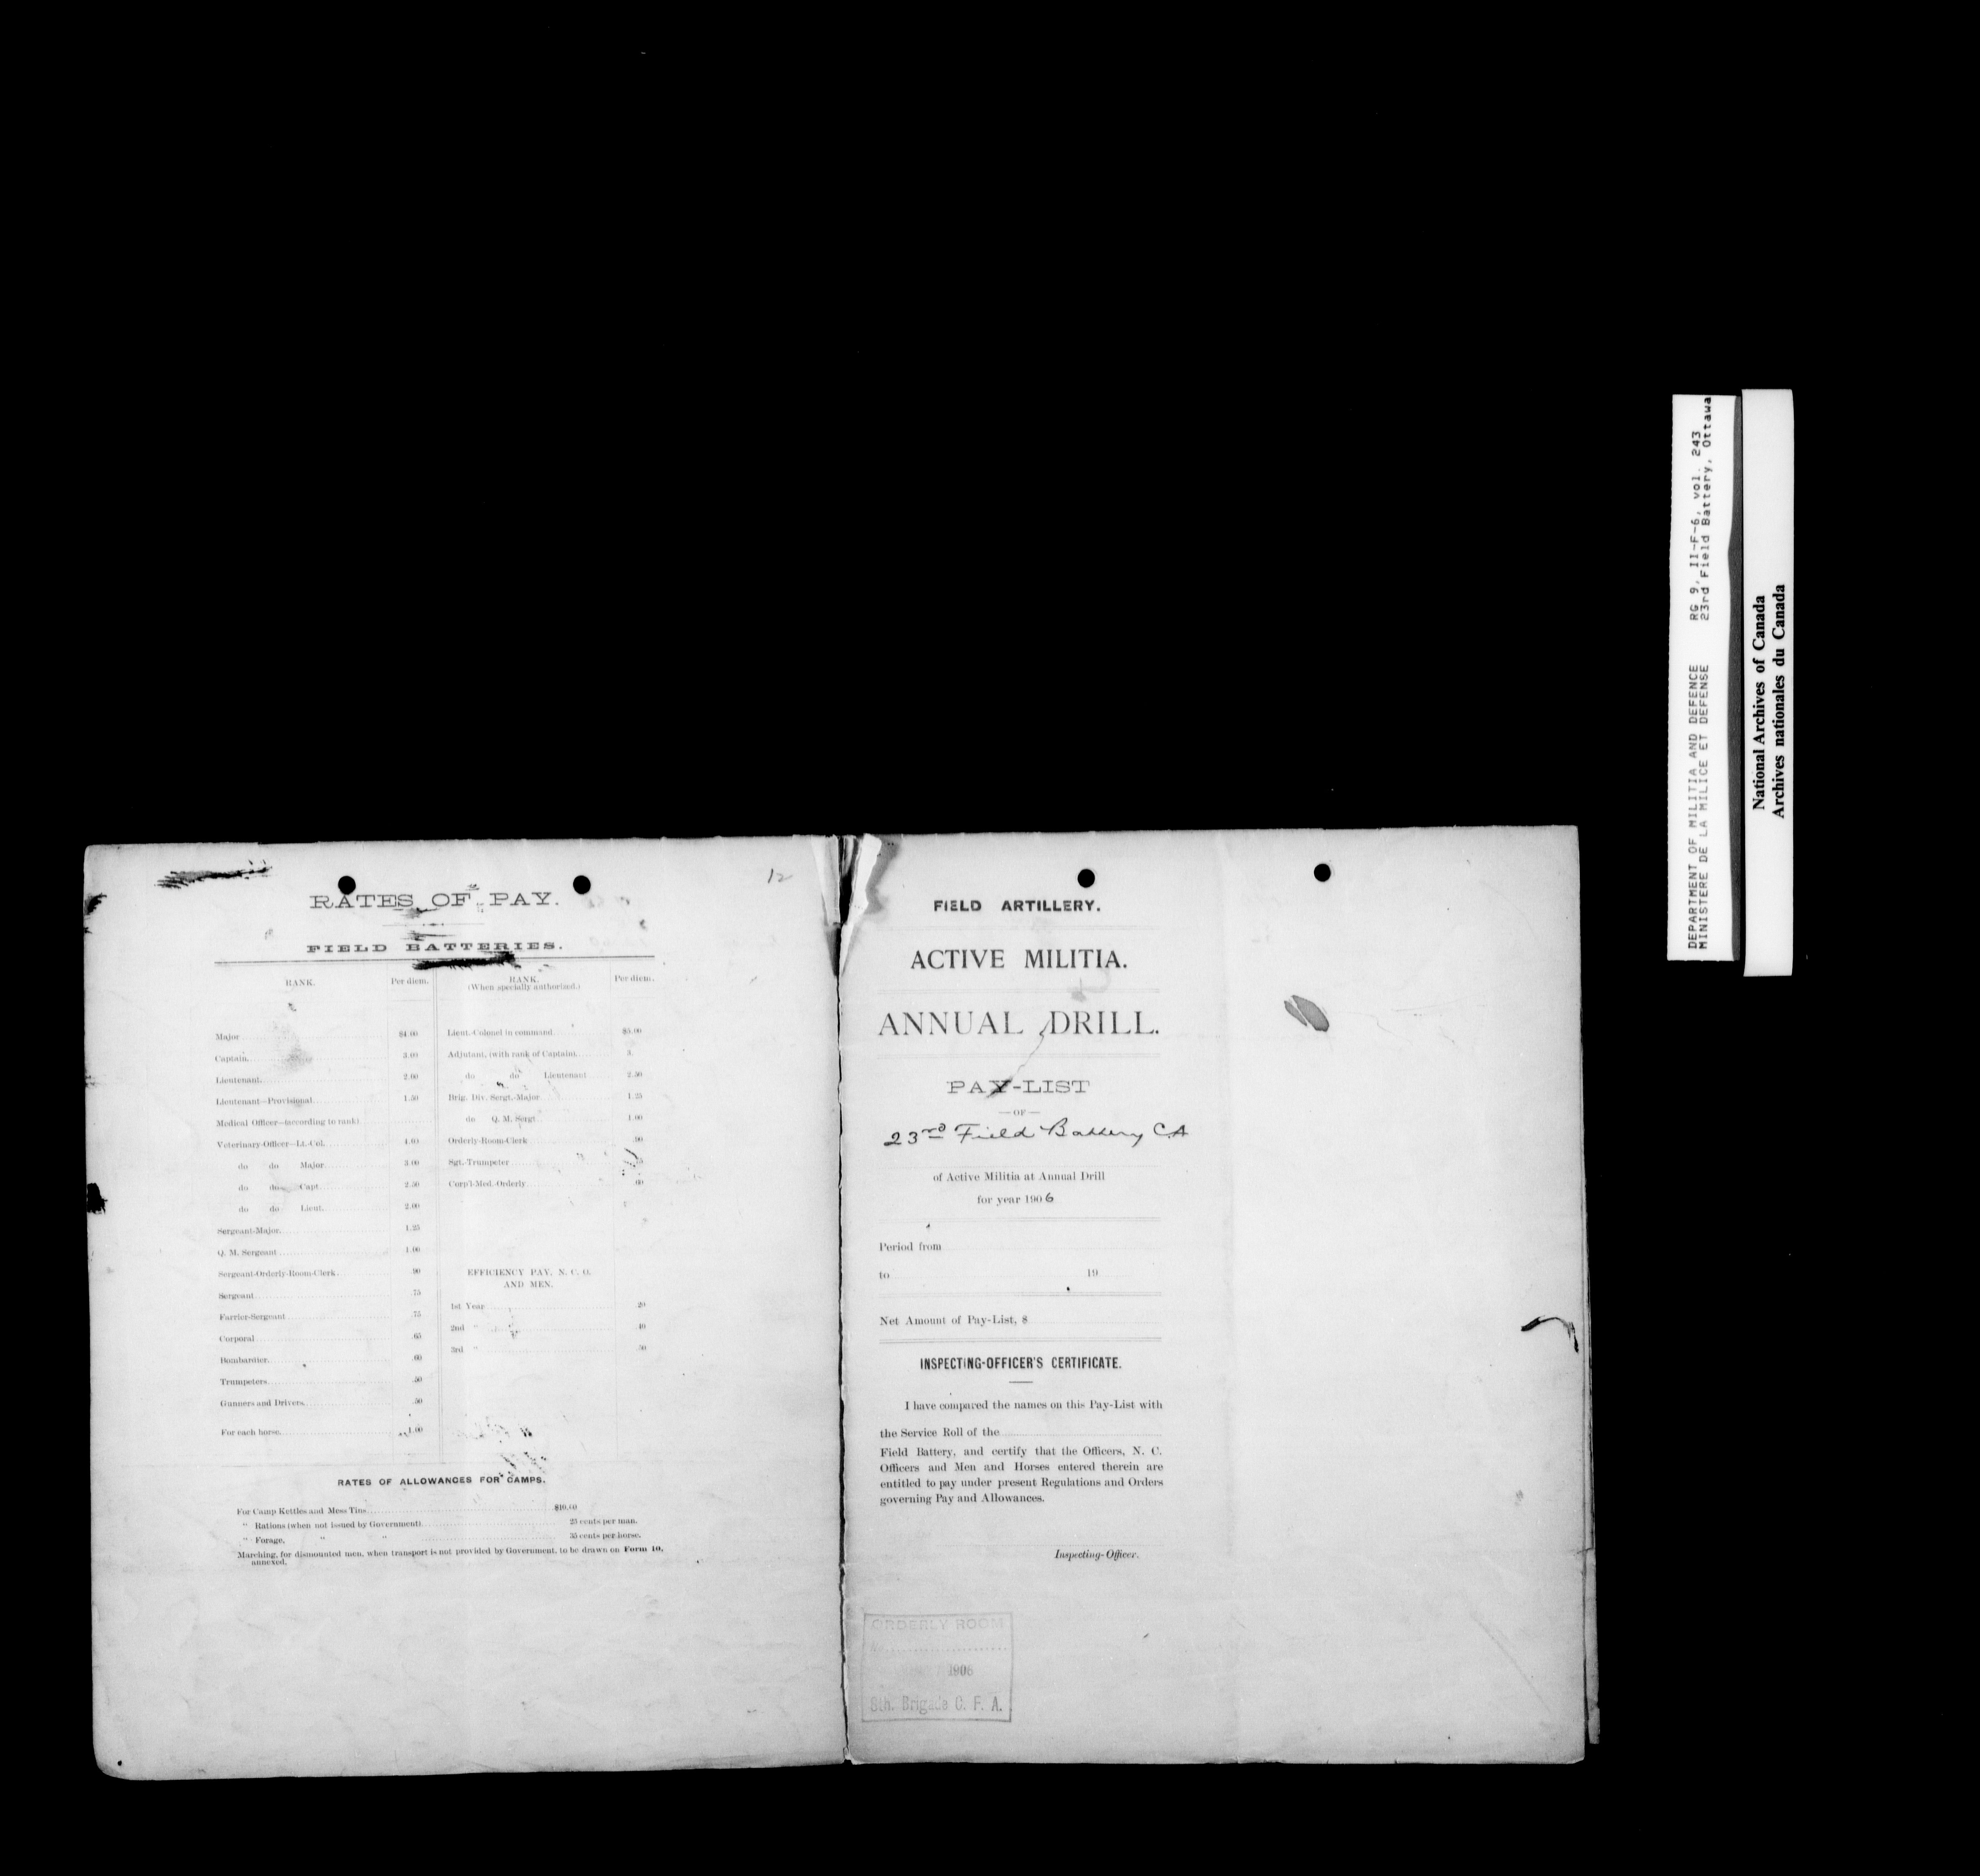 12
RATES OF PAY.
FIELD BATTERIES.
RANK. Per diem.
Major $4.00
Captain. 3.00
Lieutenant. 2.00
Lieutenant—Provisional. 1.50
Medical Officer—(according to rank)
Veterinary-Officer—Lt.-Col. 4.00
do do Major. 3.00
do do Capt. 2.50
do do Lieut. 2.00
Sergeant-Major. 1.25
Q. M. Sergeant 1.00
Sergeant-Orderly-Room-Clerk. 90
Sergeant. 75
Farrier-Sergeant .75
Corporal .65
Bombardier. .60
Trumpeters .50
Gunners and Drivers. .50
For each horse. 1.00
RANK. Per diem.
(When specially authorized.)
Lieut.-Colonel in command. $5.00
Adjutant, (with rank of Captain). 3.
do do Lieutenant 2.50
Brig. Div. Sergt.-Major. 1.25
do Q. M. Sergt. 1.00
Orderly-Room-Clerk .90
Sgt.-Trumpeter
Corp'l-Med.-Orderly. .60
EFFICIENCY PAY, N. C. O.
AND MEN.
1st Year 20
2nd " 40
3rd " 50
RATES OF ALLOWANCES FOR CAMPS.
For Camp Kettles and Mess Tins $10.00
" Rations (when not issued by Government). 25 cents per man.
" Forage, " " 35 cents per horse.
Marching, for dismounted men, when transport is not provided by Government, to be drawn on Form 10,
annexed.
FIELD ARTILLERY.
ACTIVE MILITIA.
ANNUAL DRILL.
PAY-LIST
—OF—
23rd Field Battery C.A
of Active Militia at Annual Drill
for year 1906
Period from
to 19
Net Amount of Pay-List, $
INSPECTING-OFFICER'S CERTIFICATE.
I have compared the names on this Pay-List with
the Service Roll of the
Field Battery, and certify that the Officers, N. C.
Officers and Men and Horses entered therein are
entitled to pay under present Regulations and Orders
governing Pay and Allowances.
Inspecting-Officer.
ORDERLY ROOM
No.
1906
8th. Brigade C. F. A.
DEPARTMENT OF MILITIA AND DEFENCE RG 9, II-F-6, vol. 243
MINISTERE DE LA MILICE ET DEFENSE 23rd Field Battery, Ottawa
National Archives of Canada
Archives nationales du Canada